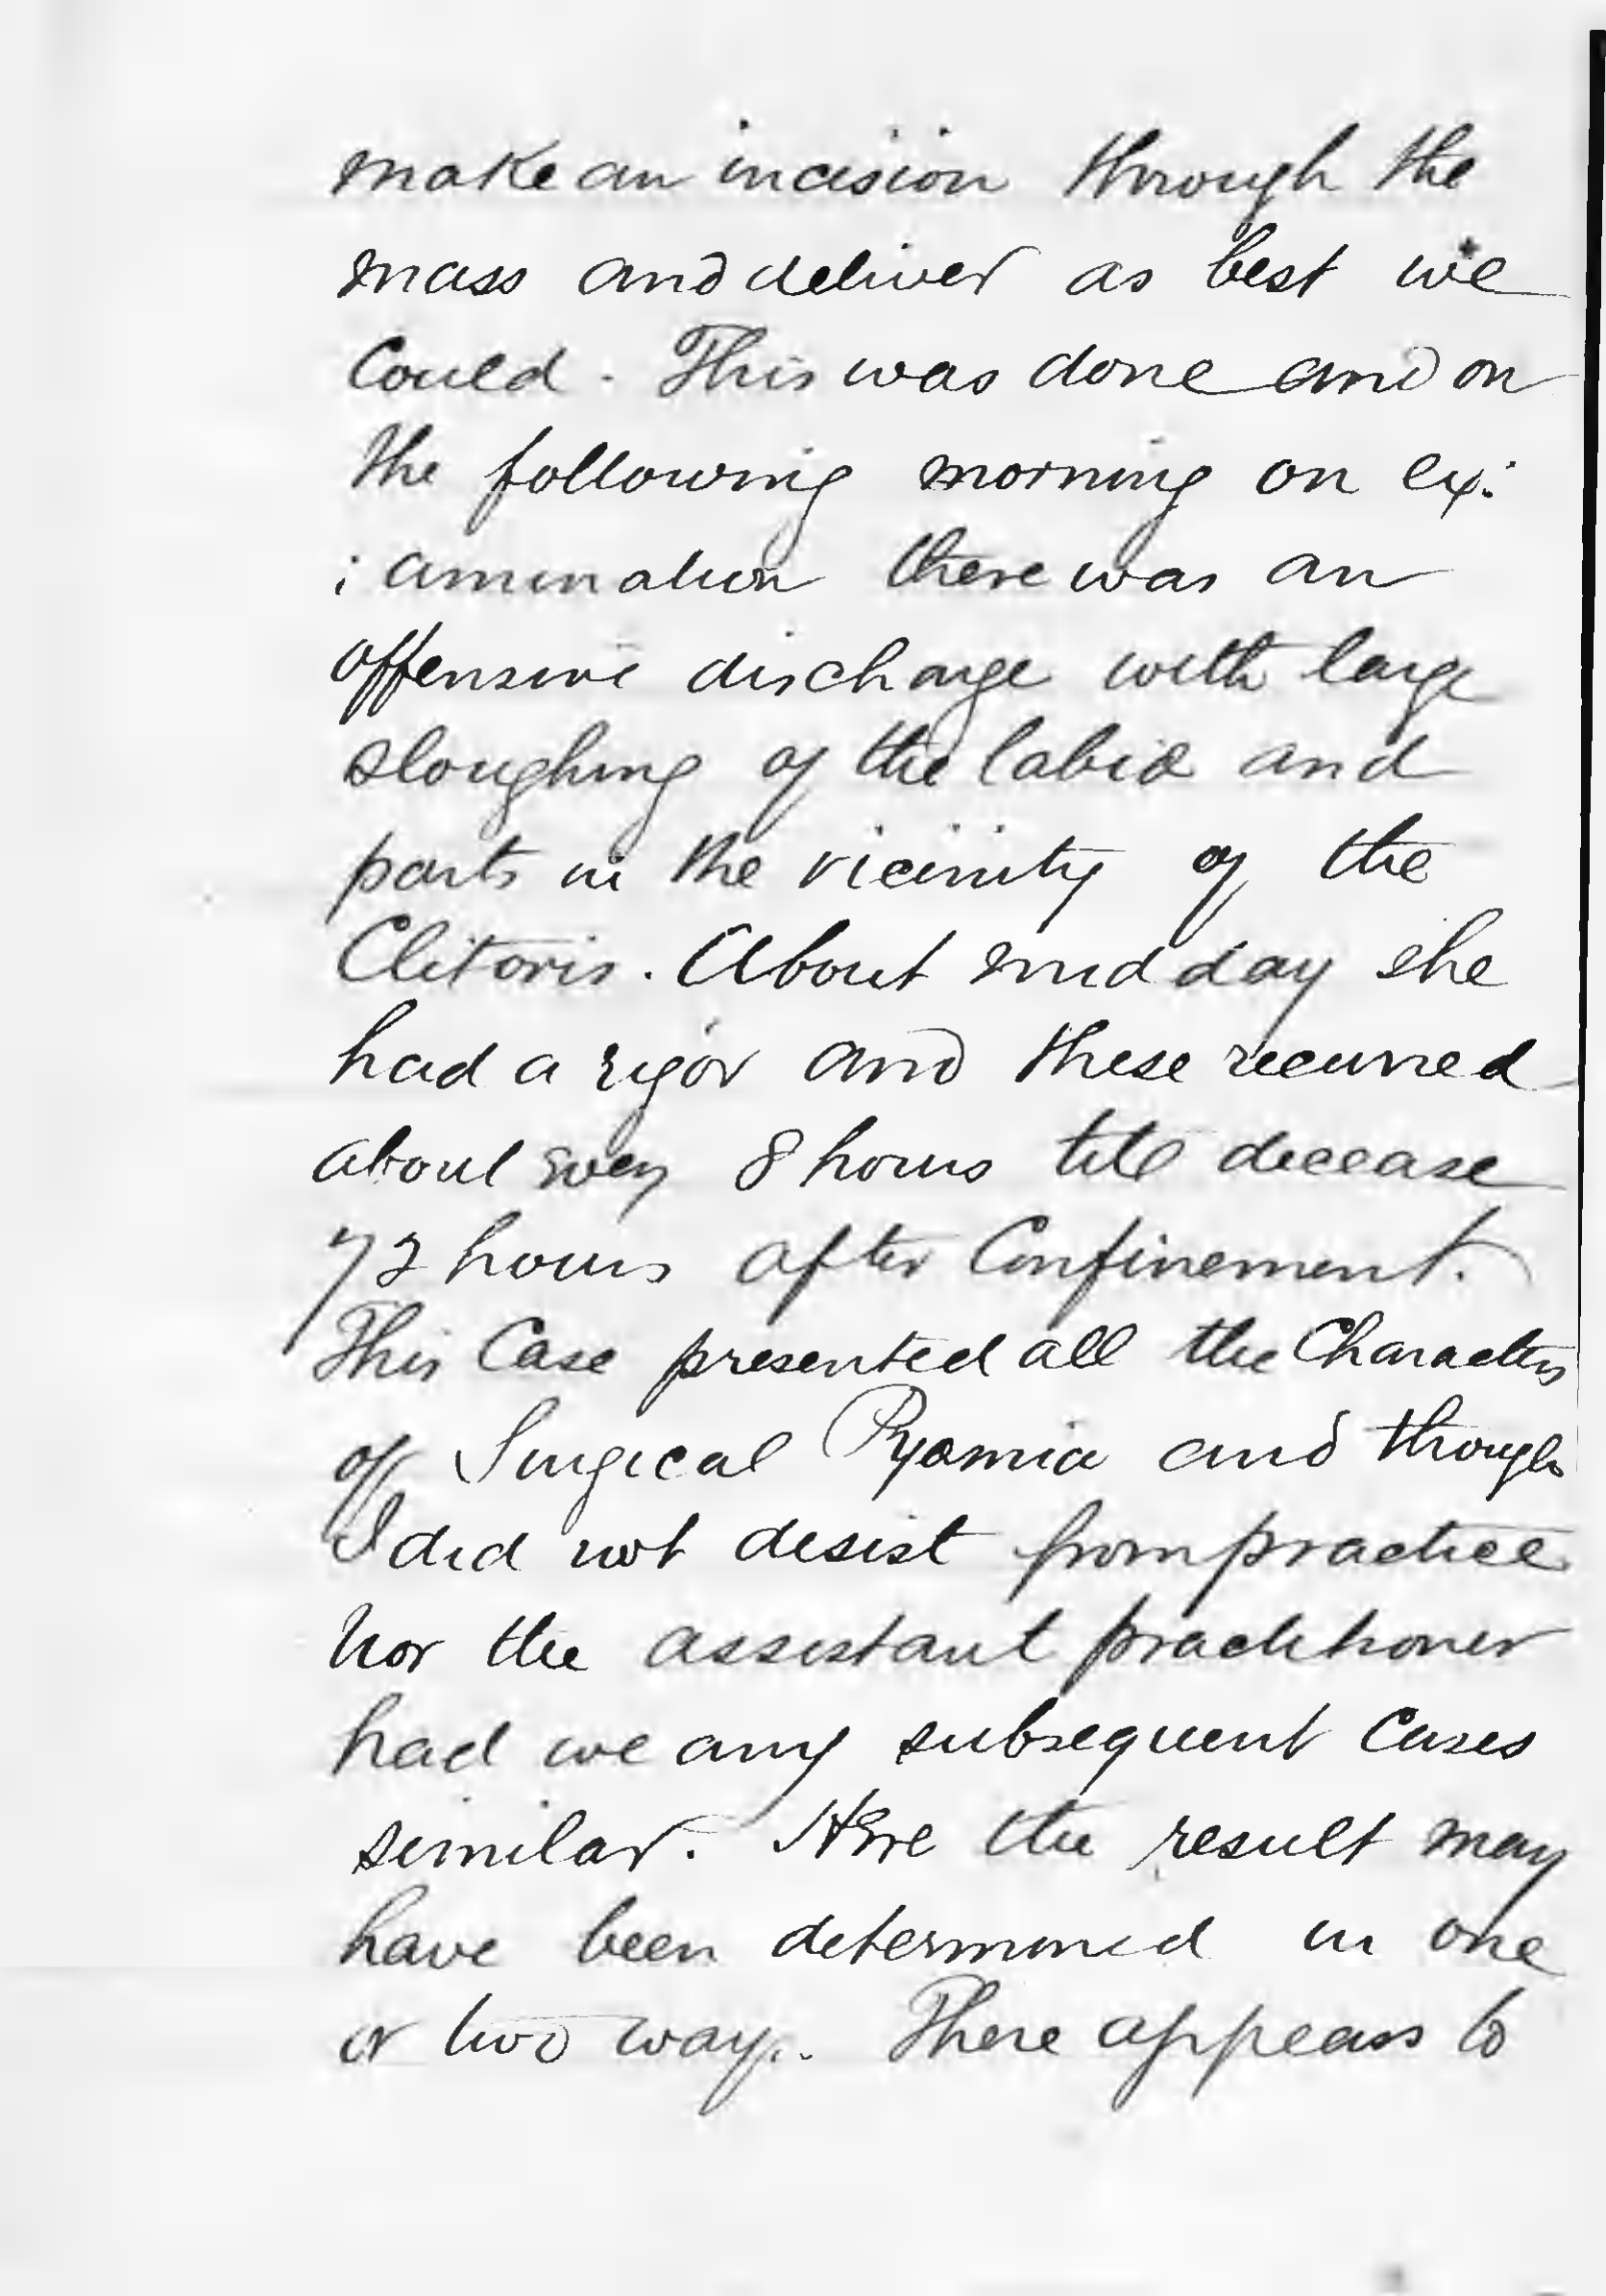 make an incision through the
mass and deliver as best we
Could. This was done and on
the following morning on ex:
: amination there was an
offensive discharge with large
sloughing of the labia and
parts in the vicinity of the
Clitoris. About mid day she
had a rigor and these recurred
about every 8 hours till decease
72 hours after Confinement.
This Case presented all the Characters
of Surgical Pyamia and though
I did not desist from practice
Nor the assistant practitioner
had we any subsequent Cases
similar. Here the result may
have been determined in one
or two ways. There appears to